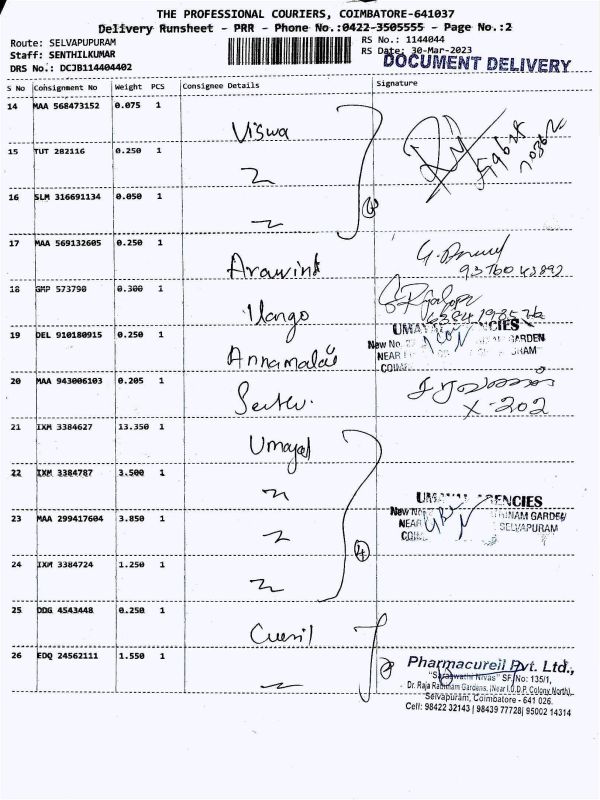 THE PROFESSIONAL COURIERS, COIMBATORE-641037
Delivery Runsheet - PRR - Phone No.:0422-3505555 - Page No.:2
Route: SELVAPUPURAM
RS No.: 1144044
Staff: SENTHILKUMAR
RS Date: 30-Mar-2023
DRS No.: DCJB114404402
DOCUMENT DELIVERY
S No Consignment No Weight PCS Consignee Details Signature
14 MAA 568473152 0.075 1 Viswa
15 TUT 282116 0.250 1
16 SLM 316691134 0.050 1
17 MAA 569132605 0.250 1 Aravint
18 GMP 573790 0.300 1 Ilango
19 DEL 910180915 0.250 1 Annamalai
UMAYAL AGENCIES
New No. GARDEN
NEAR
20 MAA 943006103 0.205 1
X-202
21 IXM 3384627 13.350 1 Umayal
22 IXM 3384787 3.500 1
UMAYAL AGENCIES
New No. RATHINAM GARDEN
NEAR SELVAPURAM
23 MAA 299417604 3.850 1
4
24 IXM 3384724 1.250 1
25 DDG 4543448 0.250 1
26 EDQ 24562111 1.550 1
Pharmacureil Pvt. Ltd.,
"Saraswathi Nivas" SF.No: 135/1,
Dr. Raja Rathnam Gardens, (Near I.O.D.P. Colony North),
Selvapuram, Coimbatore - 641 026.
Cell: 98422 32143 | 98439 77728| 95002 14314